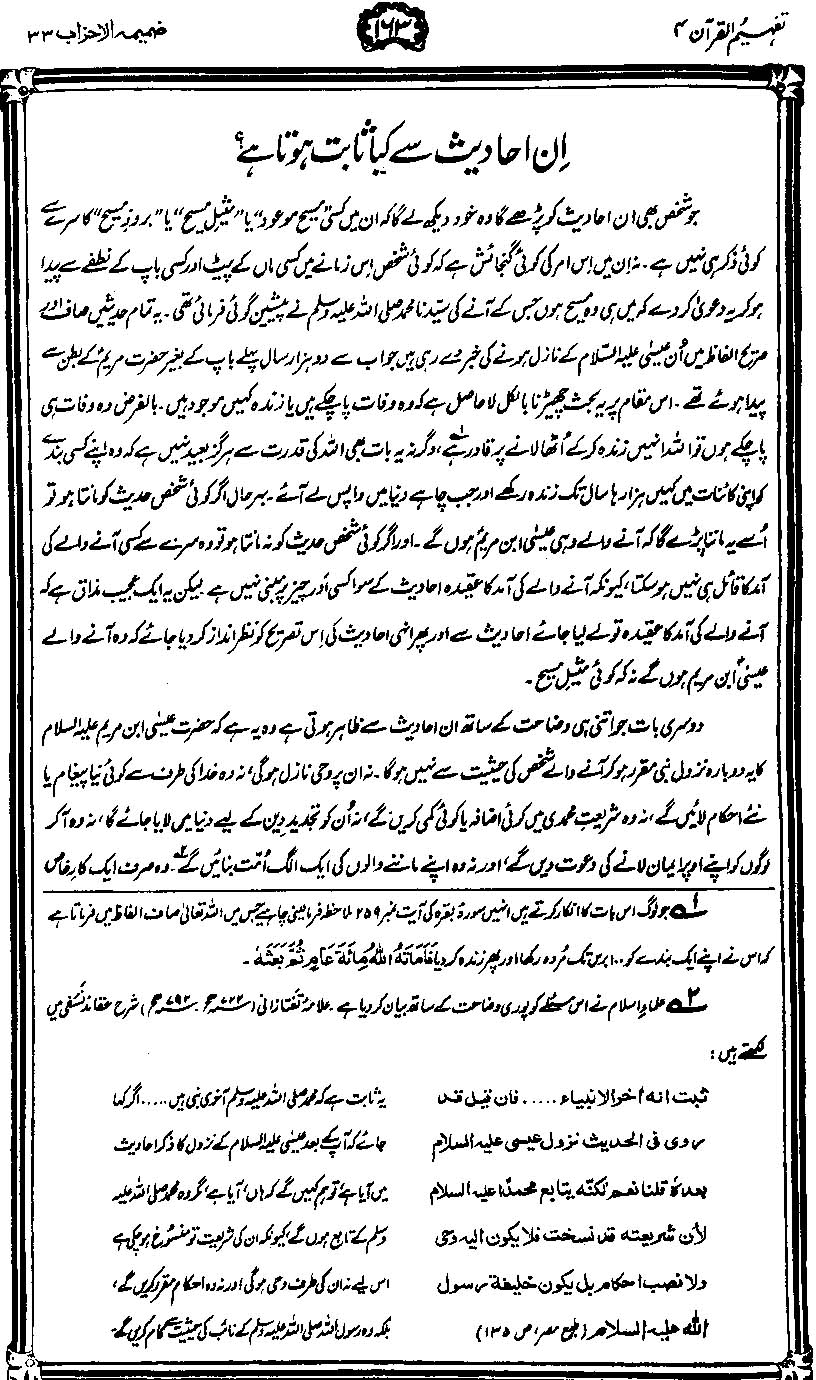 تفہیم القرآن ۴
۱۶۳
ضمیمہ الاحزاب ۳۳
اِن احادیث سے کیا ثابت ہوتا ہے؟
جو شخص بھی ان احادیث کو پڑھے گا وہ خود دیکھ لے گا کہ ان میں کسی "مسیح موعود" یا "مثیل مسیح" یا "بروزِ مسیح" کا سرے سے
کوئی ذکر ہی نہیں ہے۔ نہ ان میں اِس امر کی کوئی گنجائش ہے کہ کوئی شخص اِس زمانے میں کسی ماں کے پیٹ اور کسی باپ کے نطفے سے پیدا
ہو کر یہ دعویٰ کر دے کہ میں ہی وہ مسیح ہوں جس کے آنے کی سیّدنا محمد صلی اللہ علیہ وسلم نے پیشین گوئی فرمائی تھی۔ یہ تمام حدیثیں صاف اور
صریح الفاظ میں اُن عیسیٰ علیہ السّلام کے نازل ہونے کی خبر دے رہی ہیں جو اب سے دو ہزار سال پہلے باپ کے بغیر حضرت مریمؑ کے بطن سے
پیدا ہوئے تھے۔ اس مقام پر یہ بحث چھیڑنا بالکل لاحاصل ہے کہ وہ وفات پا چکے ہیں یا زندہ کہیں موجود ہیں۔ بالفرض وہ وفات ہی
پا چکے ہوں تو اللہ انہیں زندہ کر کے اُٹھا لانے پر قادر ہے،۱ وگرنہ یہ بات بھی اللہ کی قدرت سے ہرگز بعید نہیں ہے کہ وہ اپنے کسی بندے
کو اپنی کائنات میں کہیں ہزارہا سال تک زندہ رکھے اور جب چاہے دنیا میں واپس لے آئے۔ بہرحال اگر کوئی شخص حدیث کو مانتا ہو تو
اُسے یہ ماننا پڑے گا کہ آنے والے وہی عیسیٰ ابن مریمؑ ہوں گے۔ اور اگر کوئی شخص حدیث کو نہ مانتا ہو تو وہ سرے سے کسی آنے والے کی
آمد کا قائل ہی نہیں ہو سکتا، کیونکہ آنے والے کی آمد کا عقیدہ احادیث کے سوا کسی اَور چیز پر مبنی نہیں ہے۔ لیکن یہ ایک عجیب مذاق ہے کہ
آنے والے کی آمد کا عقیدہ تو لے لیا جائے احادیث سے اور پھر انہی احادیث کی اِس تصریح کو نظر انداز کر دیا جائے کہ وہ آنے والے
عیسیٰؑ ابن مریم ہوں گے نہ کہ کوئی مثیلِ مسیح۔
دوسری بات جو اتنی ہی وضاحت کے ساتھ ان احادیث سے ظاہر ہوتی ہے وہ یہ ہے کہ حضرت عیسیٰ ابن مریم علیہ السلام
کا یہ دوبارہ نزول نبی مقرر ہو کر آنے والے شخص کی حیثیت سے نہیں ہوگا۔ نہ ان پر وحی نازل ہوگی، نہ وہ خدا کی طرف سے کوئی نیا پیغام یا
نئے احکام لائیں گے، نہ وہ شریعتِ محمدی میں کوئی اضافہ یا کوئی کمی کریں گے، نہ اُن کو تجدیدِ دین کے لیے دنیا میں لایا جائے گا، نہ وہ آکر
لوگوں کو اپنے اوپر ایمان لانے کی دعوت دیں گے، اور نہ وہ اپنے ماننے والوں کی ایک الگ اُمّت بنائیں گے۔۲ وہ صرف ایک کارِ خاص
۱ جو لوگ اس بات کا انکار کرتے ہیں انہیں سورۂ بقرہ کی آیت نمبر ۲۵۹ ملاحظہ فرما لینی چاہیے جس میں اللہ تعالیٰ صاف الفاظ میں فرماتا ہے
کہ اس نے اپنے ایک بندے کو ۱۰۰ برس تک مُردہ رکھا اور پھر زندہ کر دیا فَاَمَاتَهُ اللّٰهُ مِائَةَ عَامٍ ثُمَّ بَعَثَهٗ۔
۲ علماءِ اسلام نے اس مسئلے کو پوری وضاحت کے ساتھ بیان کر دیا ہے۔ علامہ تفتازانی (۷۲۲ھ ۔ ۷۹۲ھ) شرح عقائد نَسَفی میں
لکھتے ہیں:
ثبت انه اٰخر الانبیاء ..... فان قیل قد
روی فی الحدیث نزول عیسی علیه السلام
بعدهٗ قلنا نعم لکنّه یتابع محمدًا علیه السلام
لأن شریعته قد نسخت فلا یکون الیه وحی
ولا نصب احکام بل یکون خلیفة رسول
الله علیه السلام (طبع مصر، ص ۱۳۵)
یہ ثابت ہے کہ محمد صلی اللہ علیہ وسلم آخری نبی ہیں ..... اگر کہا
جائے کہ آپ کے بعد عیسیٰ علیہ السلام کے نزول کا ذکر احادیث
میں آیا ہے، تو ہم کہیں گے کہ ہاں، آیا ہے، مگر وہ محمد صلی اللہ علیہ
وسلم کے تابع ہوں گے، کیونکہ ان کی شریعت تو منسوخ ہو چکی ہے
اس لیے نہ ان کی طرف وحی ہوگی اور نہ وہ احکام مقرر کریں گے،
بلکہ وہ رسول اللہ صلی اللہ علیہ وسلم کے نائب کی حیثیت سے کام کریں گے۔